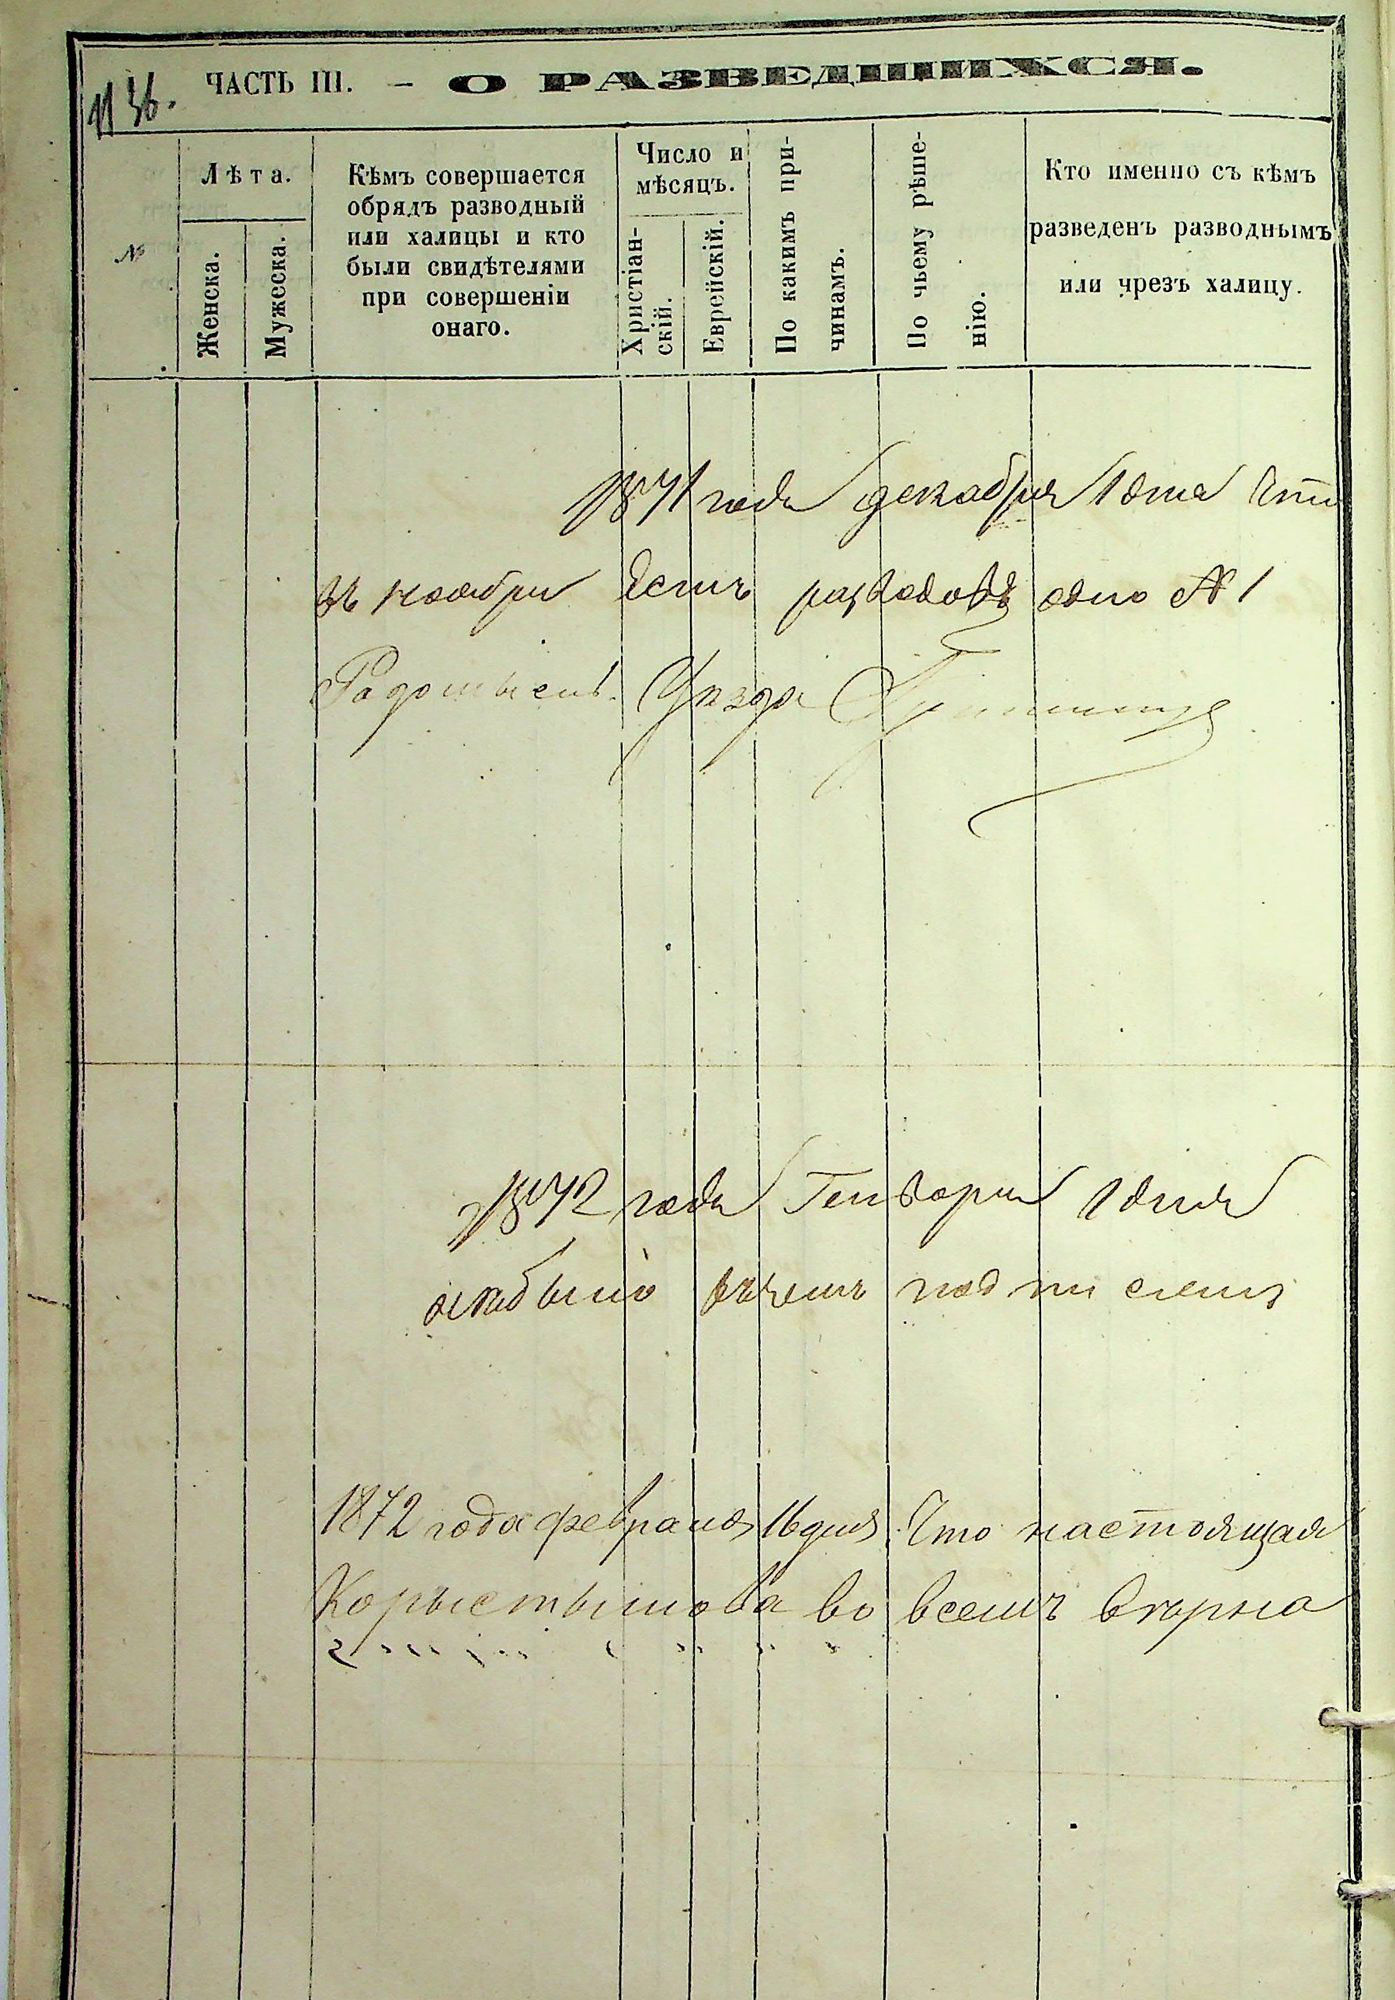 1136.
ЧАСТЬ III. – О РАЗВЕДШИХСЯ.
№
Лѣта.
Женска.
Мужеска.
Кѣмъ совершается
обрядъ разводный
или халицы и кто
были свидѣтелями
при совершеніи
онаго.
Число и
мѣсяцъ.
Христіан-
скій.
Еврейскій.
По какимъ при-
чинамъ.
По чьему рѣше-
нію.
Кто именно съ кѣмъ
разведенъ разводнымъ
или чрезъ халицу.
1871 года декабря 1 дня Что
въ ноябри есть разводовъ одно № 1
Радомысль. Уѣзда
1872 года Генваря 1 дня
подписемъ
1872 года февраля 16 дня. Что настоящая
во всемъ вѣрна